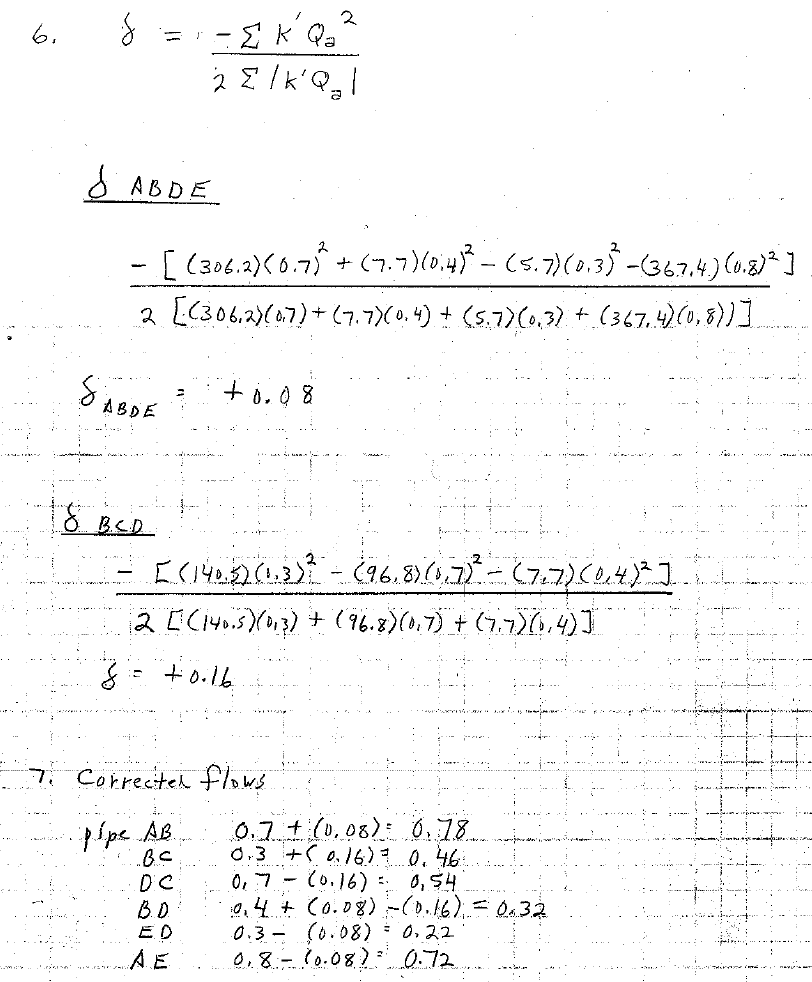 6. δ = - Σ K'Qa²
2 Σ |K'Qa|
δ ABDE
- [ (306.2)(0.7)² + (7.7)(0.4)² - (5.7)(0.3)² - (367.4)(0.8)² ]
2 [(306.2)(0.7) + (7.7)(0.4) + (5.7)(0.3) + (367.4)(0.8))]
δ ABDE = +0.08
δ BCD
- [(140.5)(0.3)² - (96.8)(0.7)² - (7.7)(0.4)²]
2 [(140.5)(0.3) + (96.8)(0.7) + (7.7)(0.4)]
δ = +0.16
7. Corrected flows
pipe AB 0.7 + (0.08) = 0.78
BC 0.3 + (0.16) = 0.46
DC 0.7 - (0.16) = 0.54
BD 0.4 + (0.08) - (0.16) = 0.32
ED 0.3 - (0.08) = 0.22
AE 0.8 - (0.08) = 0.72